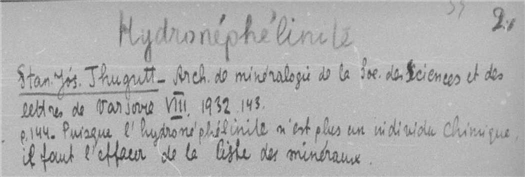 2.
Hydronéphélinite
Stan. Jós. Thugutt _ Arch. de minéralogie de la Soc. des Sciences et des
lettres de Varsovie VIII. 1932 143.
p.144. Puisque l'hydronéphélinite n'est plus un individu chimique,
il faut l'effacer de la liste des minéraux.